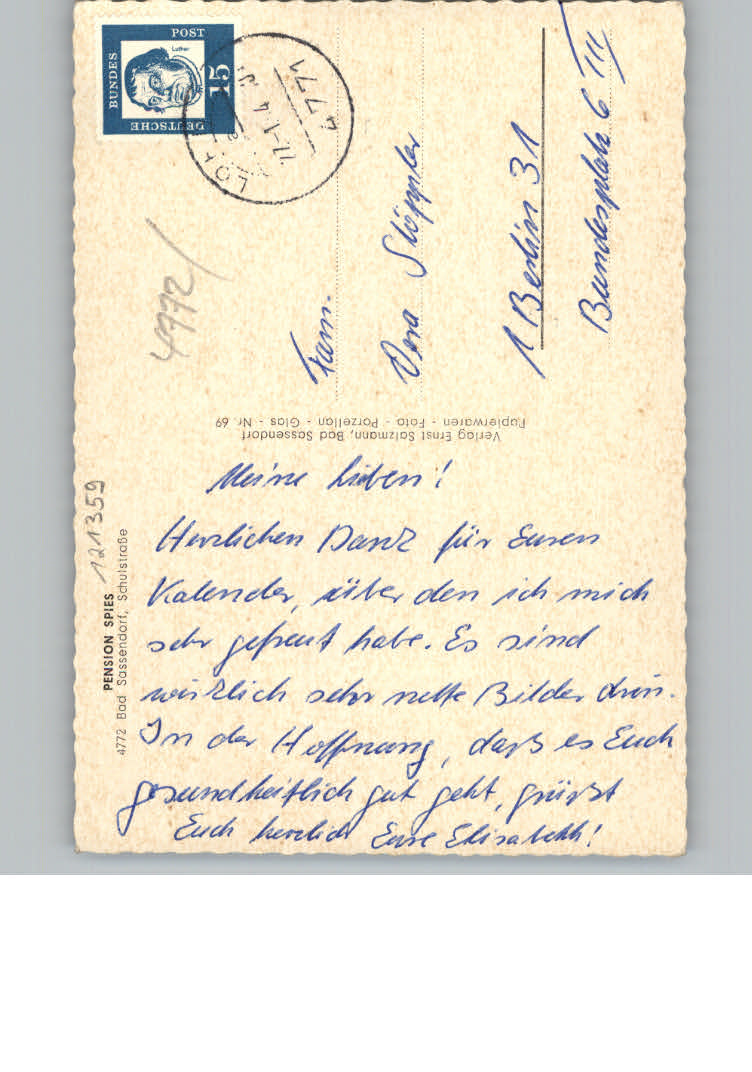 Meine Lieben!
Herzlichen Dank für Euren
Kalender, über den ich mich
sehr gefreut habe. Es sind
wirklich sehr nette Bilder drin.
In der Hoffnung, daß es Euch
gesundheitlich gut geht, grüßt
Euch herzlich Eure Elisabeth!
PENSION SPIES
4772 Bad Sassendorf, Schulstraße
121359
Verlag Ernst Salzmann, Bad Sassendorf
Papierwaren - Foto - Porzellan - Glas - Nr. 69
Fam.
Vera Stöppler
1 Berlin 31
Bundesplatz 6 III
4772
DEUTSCHE
BUNDES
POST
Luther
15
4771